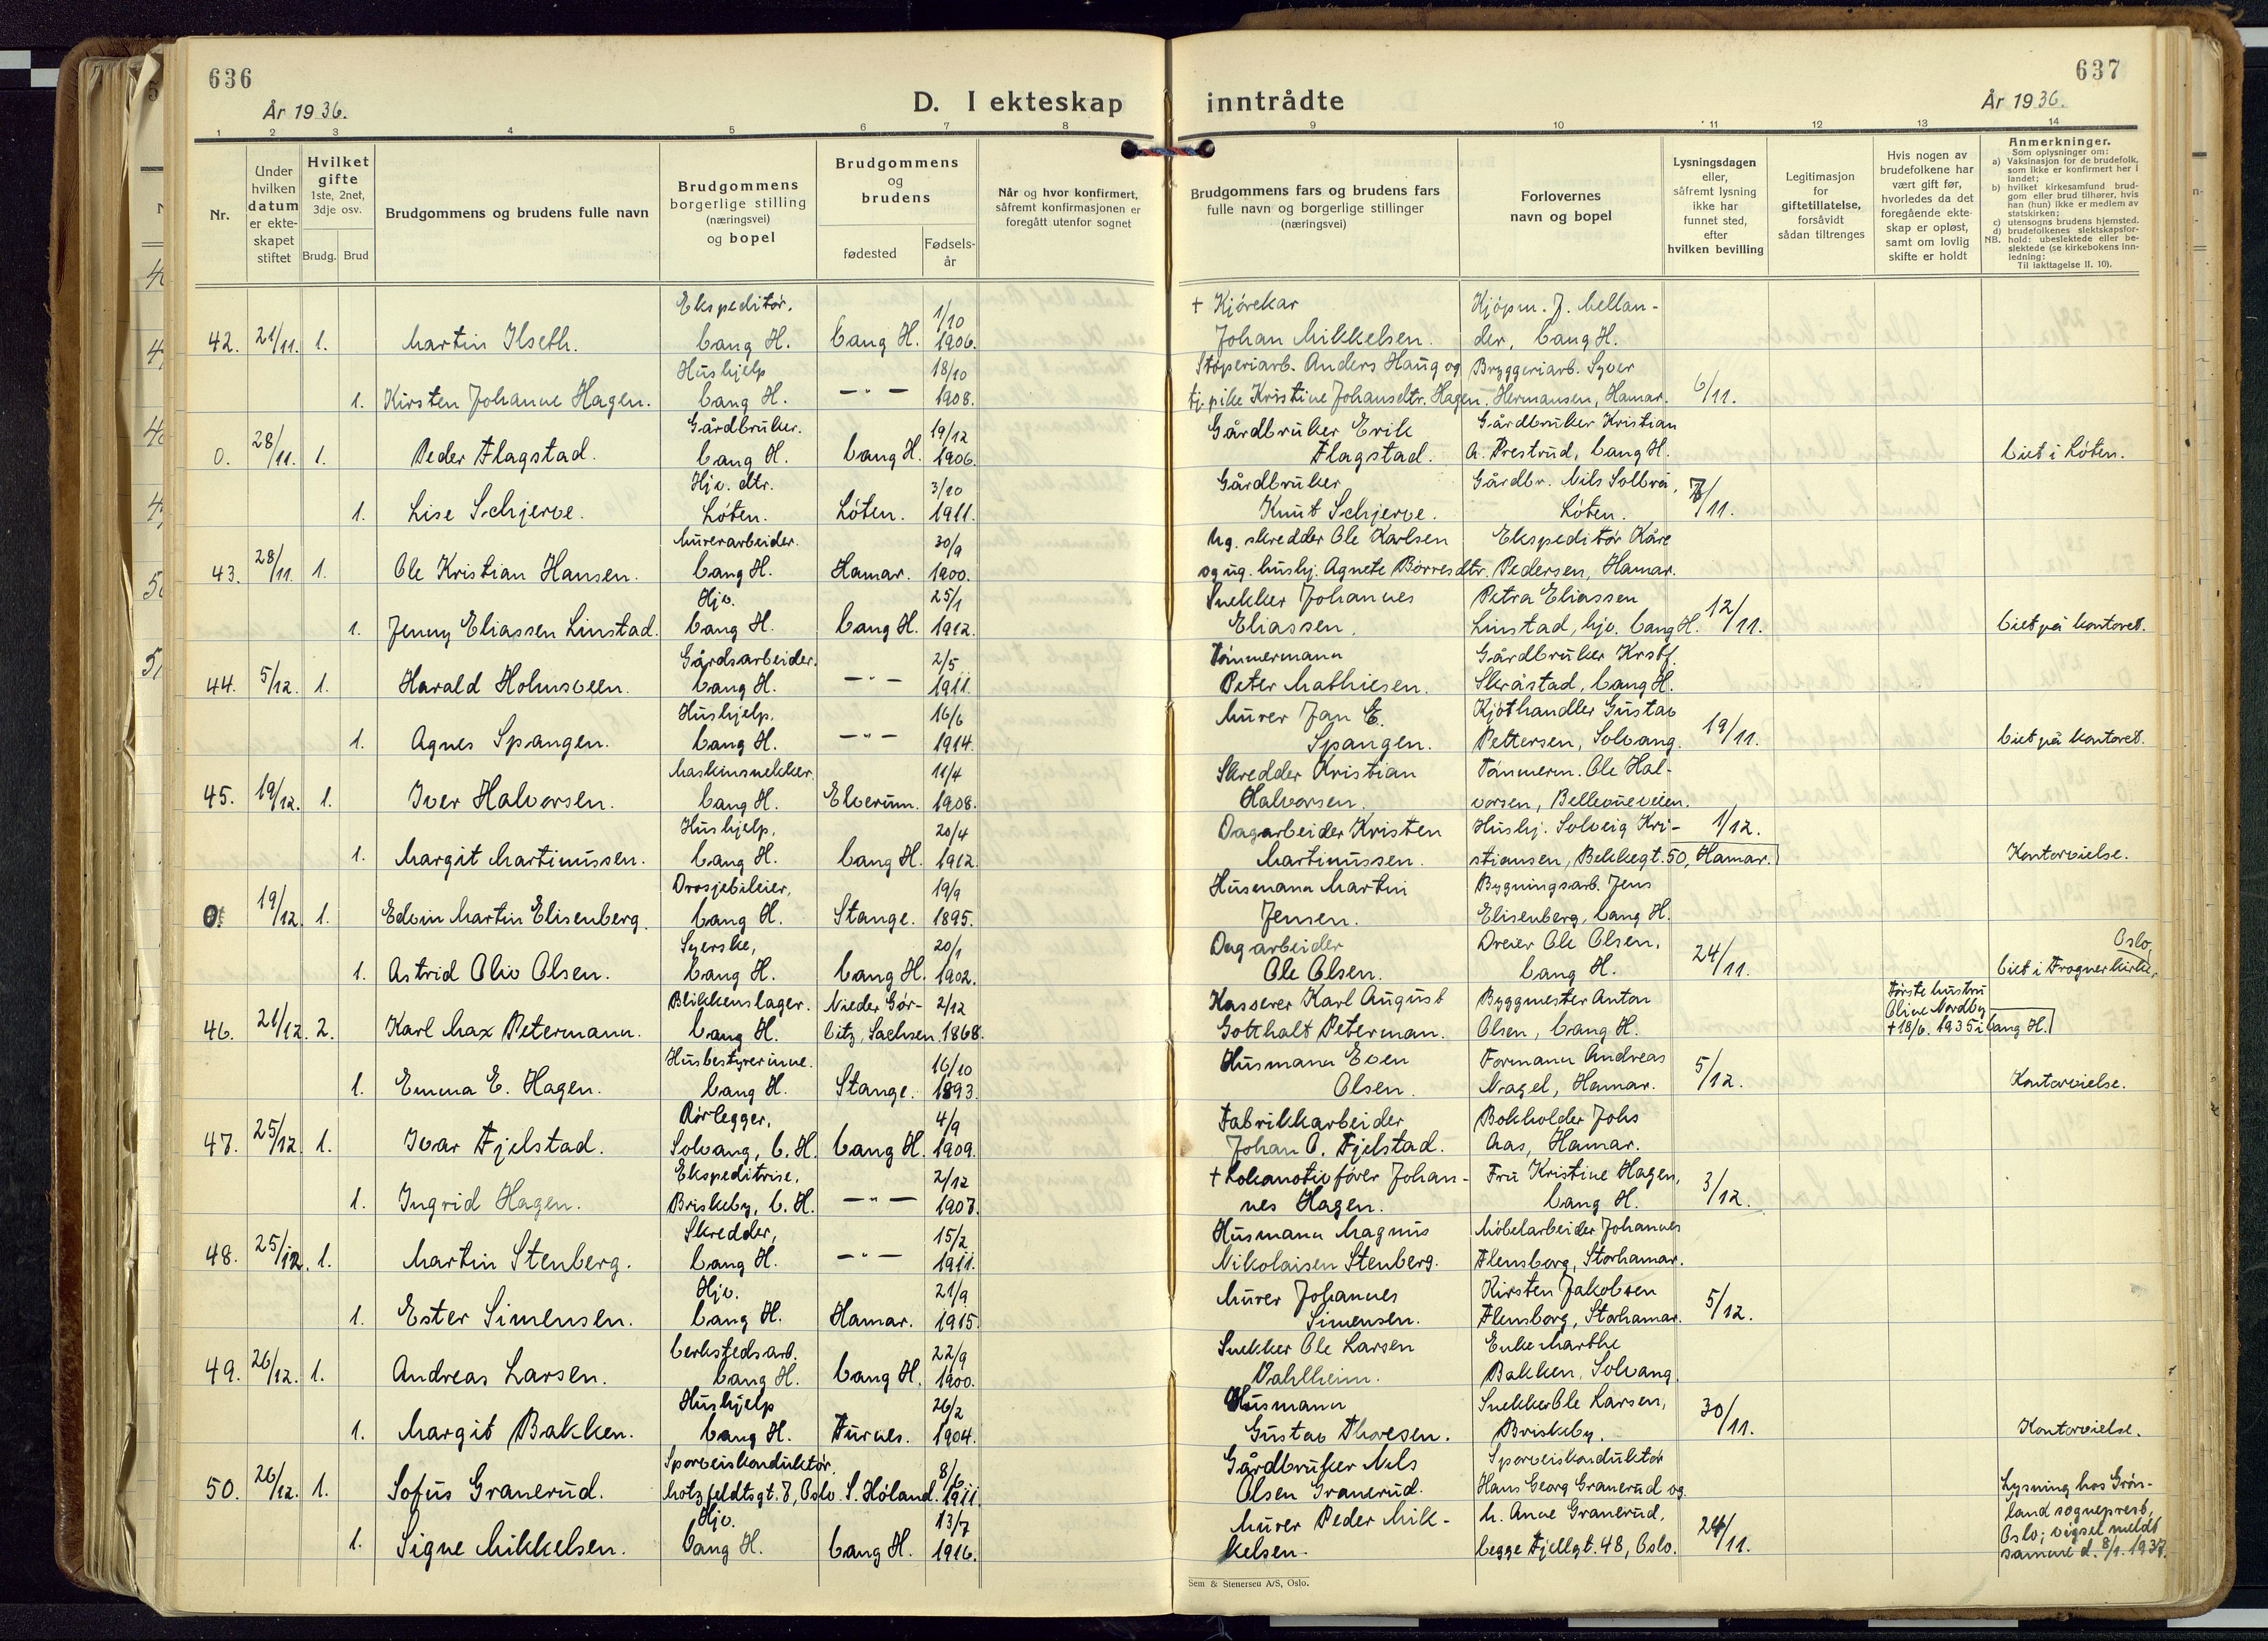 636
År 1936.
D. I ekteskap
1 2 3 4 5 6 7 8
Nr.
Under hvilken datum er ekteskapet stiftet
Hvilket gifte 1ste, 2net, 3dje osv.
Brudg. Brud
Brudgommens og brudens fulle navn
Brudgommens borgerlige stilling (næringsvei) og bopel
Brudgommens og brudens
fødested
Fødsels-år
Når og hvor konfirmert, såfremt konfirmasjonen er foregått utenfor sognet
Ekspeditør. 1/10
42. 21/11. 1. Martin Ilseth. Vang H. Vang H. 1906.
Hushjelp 18/10
1. Kirsten Johanne Hagen. Vang H. —"— 1908.
Gårdbruker. 19/12
0. 28/11. 1. Peder Flagstad. Vang H. Vang H. 1906.
Hjv. dtr. 3/10
1. Lise Schjerve. Løten. Løten. 1911.
Murerarbeider. 30/9
43. 28/11. 1. Ole Kristian Hansen. Vang H. Hamar. 1900.
Hjv. 25/1
1. Jenny Eliassen Linstad. Vang H. Vang H. 1912.
Gårdsarbeider. 2/5
44. 5/12. 1. Harald Holmsveen. Vang H. —"— 1911.
Hushjelp. 16/6
1. Agnes Spangen. Vang H. —"— 1914.
Maskinsnekker. 11/4
45. 19/12. 1. Iver Halvorsen. Vang H. Elverum. 1908.
Hushjelp. 20/4
1. Margit Martinussen. Vang H. Vang H. 1912.
Drosjebileier, 19/9
0. 19/12. 1. Edvin Martin Elisenberg. Vang H. Stange. 1895.
Syerske, 20/1
1. Astrid Oliv Olsen. Vang H. Vang H. 1902.
Blikkenslager. Nieder Gör- 2/12
46. 21/12. 2. Karl Max Petermann. Vang H. bitz, Sachsen. 1868.
Husbestyrerinne. 16/10
1. Emma E. Hagen. Vang H. Stange. 1893.
Rørlegger, 4/9
47. 25/12. 1. Ivar Fjelstad. Solvang, V. H. Vang H. 1909.
Ekspeditrise, 2/12
1. Ingrid Hagen. Briskeby, V. H. —"— 1907.
Skredder, 15/2
48. 25/12. 1. Martin Stenberg. Vang H. —"— 1911.
Hjv. 21/9
1. Ester Simensen. Vang H. Hamar. 1915.
Verkstedsarb. 22/9
49. 26/12. 1. Andreas Larsen. Vang H. Vang H. 1900.
Hushjelp 26/2
1. Margit Bakken. Vang H. Furnes. 1904.
Sporveiskonduktør. 8/6
50. 26/12. 1. Sofus Granerud. Motzfeldtsgt. 8, Oslo. S. Høland. 1911.
Hjv. 13/7
1. Signe Mikkelsen. Vang H. Vang H. 1916.
637
inntrådte
År 1936.
9 10 11 12 13 14
Brudgommens fars og brudens fars fulle navn og borgerlige stillinger (næringsvei)
Forlovernes navn og bopel
Lysningsdagen eller, såfremt lysning ikke har funnet sted, efter hvilken bevilling
Legitimasjon for giftetillatelse, forsåvidt sådan tiltrenges
Hvis nogen av brudefolkene har vært gift før, hvorledes da det foregående ekteskap er opløst, samt om lovlig skifte er holdt
Anmerkninger.
Som oplysninger om:
a) Vaksinasjon for de brudefolk, som ikke er konfirmert her i landet;
b) hvilket kirkesamfund brudgom eller brud tilhører, hvis han (hun) ikke er medlem av statskirken;
c) utensogns brudens hjemsted.
d) brudefolkenes slektskapsfor-
NB. hold: ubeslektede eller beslektede (se kirkebokens innledning:
Til iakttagelse II. 10).
+ Kjørekar Kjøpm. J. Mellan-
Johan Mikkelsen. der, Vang H.
Støperiarb. Anders Haug og Bryggeriarb. Syver
tj. pike Kristine Johansdtr. Hagen. Hermansen, Hamar. 6/11.
Gårdbruker Erik Gårdbruker Kristian
Flagstad. A. Prestrud, Vang H. Viet i Løten.
Gårdbruker Gårdbr. Nils Solbrå,
Knut Schjerve. Løten. 7/11.
Ug. skredder Ole Karlsen Ekspeditør Kåre
og ug. hushj. Agnete Børresdtr. Pedersen, Hamar.
Snekker Johannes Petra Eliassen
Eliassen. Linstad, hjv. Vang H. 12/11. Viet på kontoret.
Tømmermann Gårdbruker Krstf.
Peter Mathiesen. Skråstad, Vang H.
Murer Jan E. Kjøthandler Gustav
Spangen. Pettersen, Solvang. 19/11. Viet på kontoret.
Skredder Kristian Tømmerm. Ole Hal-
Halvorsen. vorsen, Bellevueveien.
Dagarbeider Kristen Hushj. Solveig Kri- 1/12.
Martinussen. stiansen, Bekkegt. 50, Hamar. Kontorvielse.
Husmann Martin Bygningsarb. Jens
Jensen. Elisenberg, Vang H.
Dagarbeider Dreier Ole Olsen, Oslo,
Ole Olsen. Vang H. 24/11. Viet i Frogner kirke,
Kasserer Karl August Byggmester Anton Første hustru Oline Nordby
Gotthalt Peterman. Olsen, Vang H. + 18/6. 1935 i Vang H.
Husmann Even Formann Andreas
Olsen. Nagel, Hamar. 5/12. Kontorvielse.
Fabrikkarbeider Bokholder Johs
Johan O. Fjelstad. Aas, Hamar.
+ Lokomotivfører Johan- Fru Kristine Hagen,
nes Hagen. Vang H. 3/12.
Husmann Magnus Møbelarbeider Johannes
Nikolaisen Stenberg. Flensborg, Storhamar.
Murer Johannes Kirsten Jakobsen
Simensen. Flensborg, Storhamar. 5/12.
Snekker Ole Larsen Enke Marthe
Dahlheim. Bakken, Solvang.
Husmann Snekker Ole Larsen,
Gustav Thoresen. Briskeby. 30/11. Kontorvielse.
Gårdbruker Nils Sporveiskonduktør
Olsen Granerud. Hans Georg Granerud og
Murer Peder Mik- h. Anne Granerud,
kelsen. begge Fjellgt. 48, Oslo. 24/11.
Lysning hos Grøn-
land sogneprest,
Oslo; vigsel meldt
samme d. 8/1. 1937.
Sem & Stenersen A/S, Oslo.